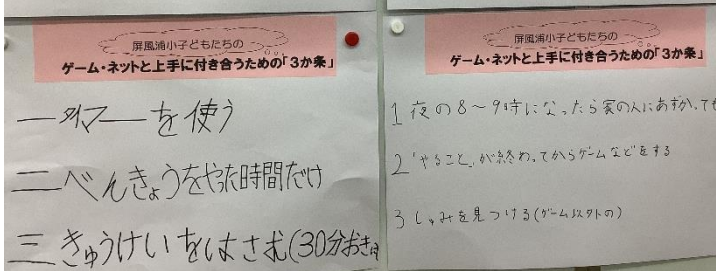 屏風浦小子どもたちの
ゲーム・ネットと上手に付き合うための「3か条」
一 タイマーを使う
二 べんきょうをやった時間だけ
三 きゅうけいをはさむ(30分おき
屏風浦小子どもたちの
ゲーム・ネットと上手に付き合うための「3か条」
1 夜の8〜9時になったら家の人にあずかっても
2「やること」が終わってからゲームなどをする
3 しゅみを見つける(ゲーム以外の)